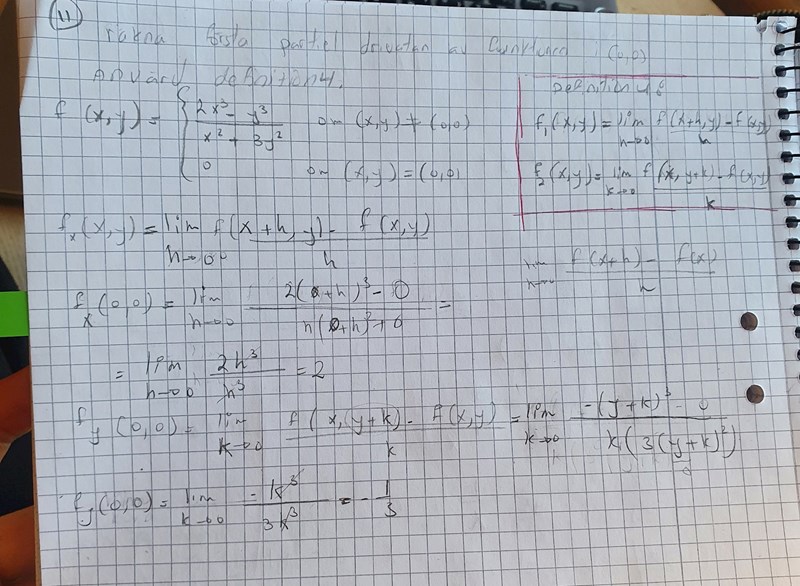 11
räkna första partiel drivatan av funktionen i (0,0)
Använd definitionen.
f (x,y) = { 2x³ - y³ / x² + 3y² om (x,y) ≠ (0,0)
0 om (x,y) = (0,0)
Definition
f₁(x,y) = lim h→0 f(x+h,y) - f(x,y) / h
f₂(x,y) = lim k→0 f(x, y+k) - f(x,y) / k
fₓ(x,y) = lim h→0 f(x+h, y) - f(x,y) / h
lim h→0 f(x+h) - f(x) / h
fₓ(0,0) = lim h→0 2(0+h)³ - 0 / h(0+h)²+0 =
= lim h→0 2h³ / h³ = 2
f_y(0,0) = lim k→0 f(x, (y+k) - f(x,y) / k = lim k→0 -(y+k)³ - 0 / k(3(y+k)²)
f_y(0,0) = lim k→0 -k³ / 3k³ = - 1/3